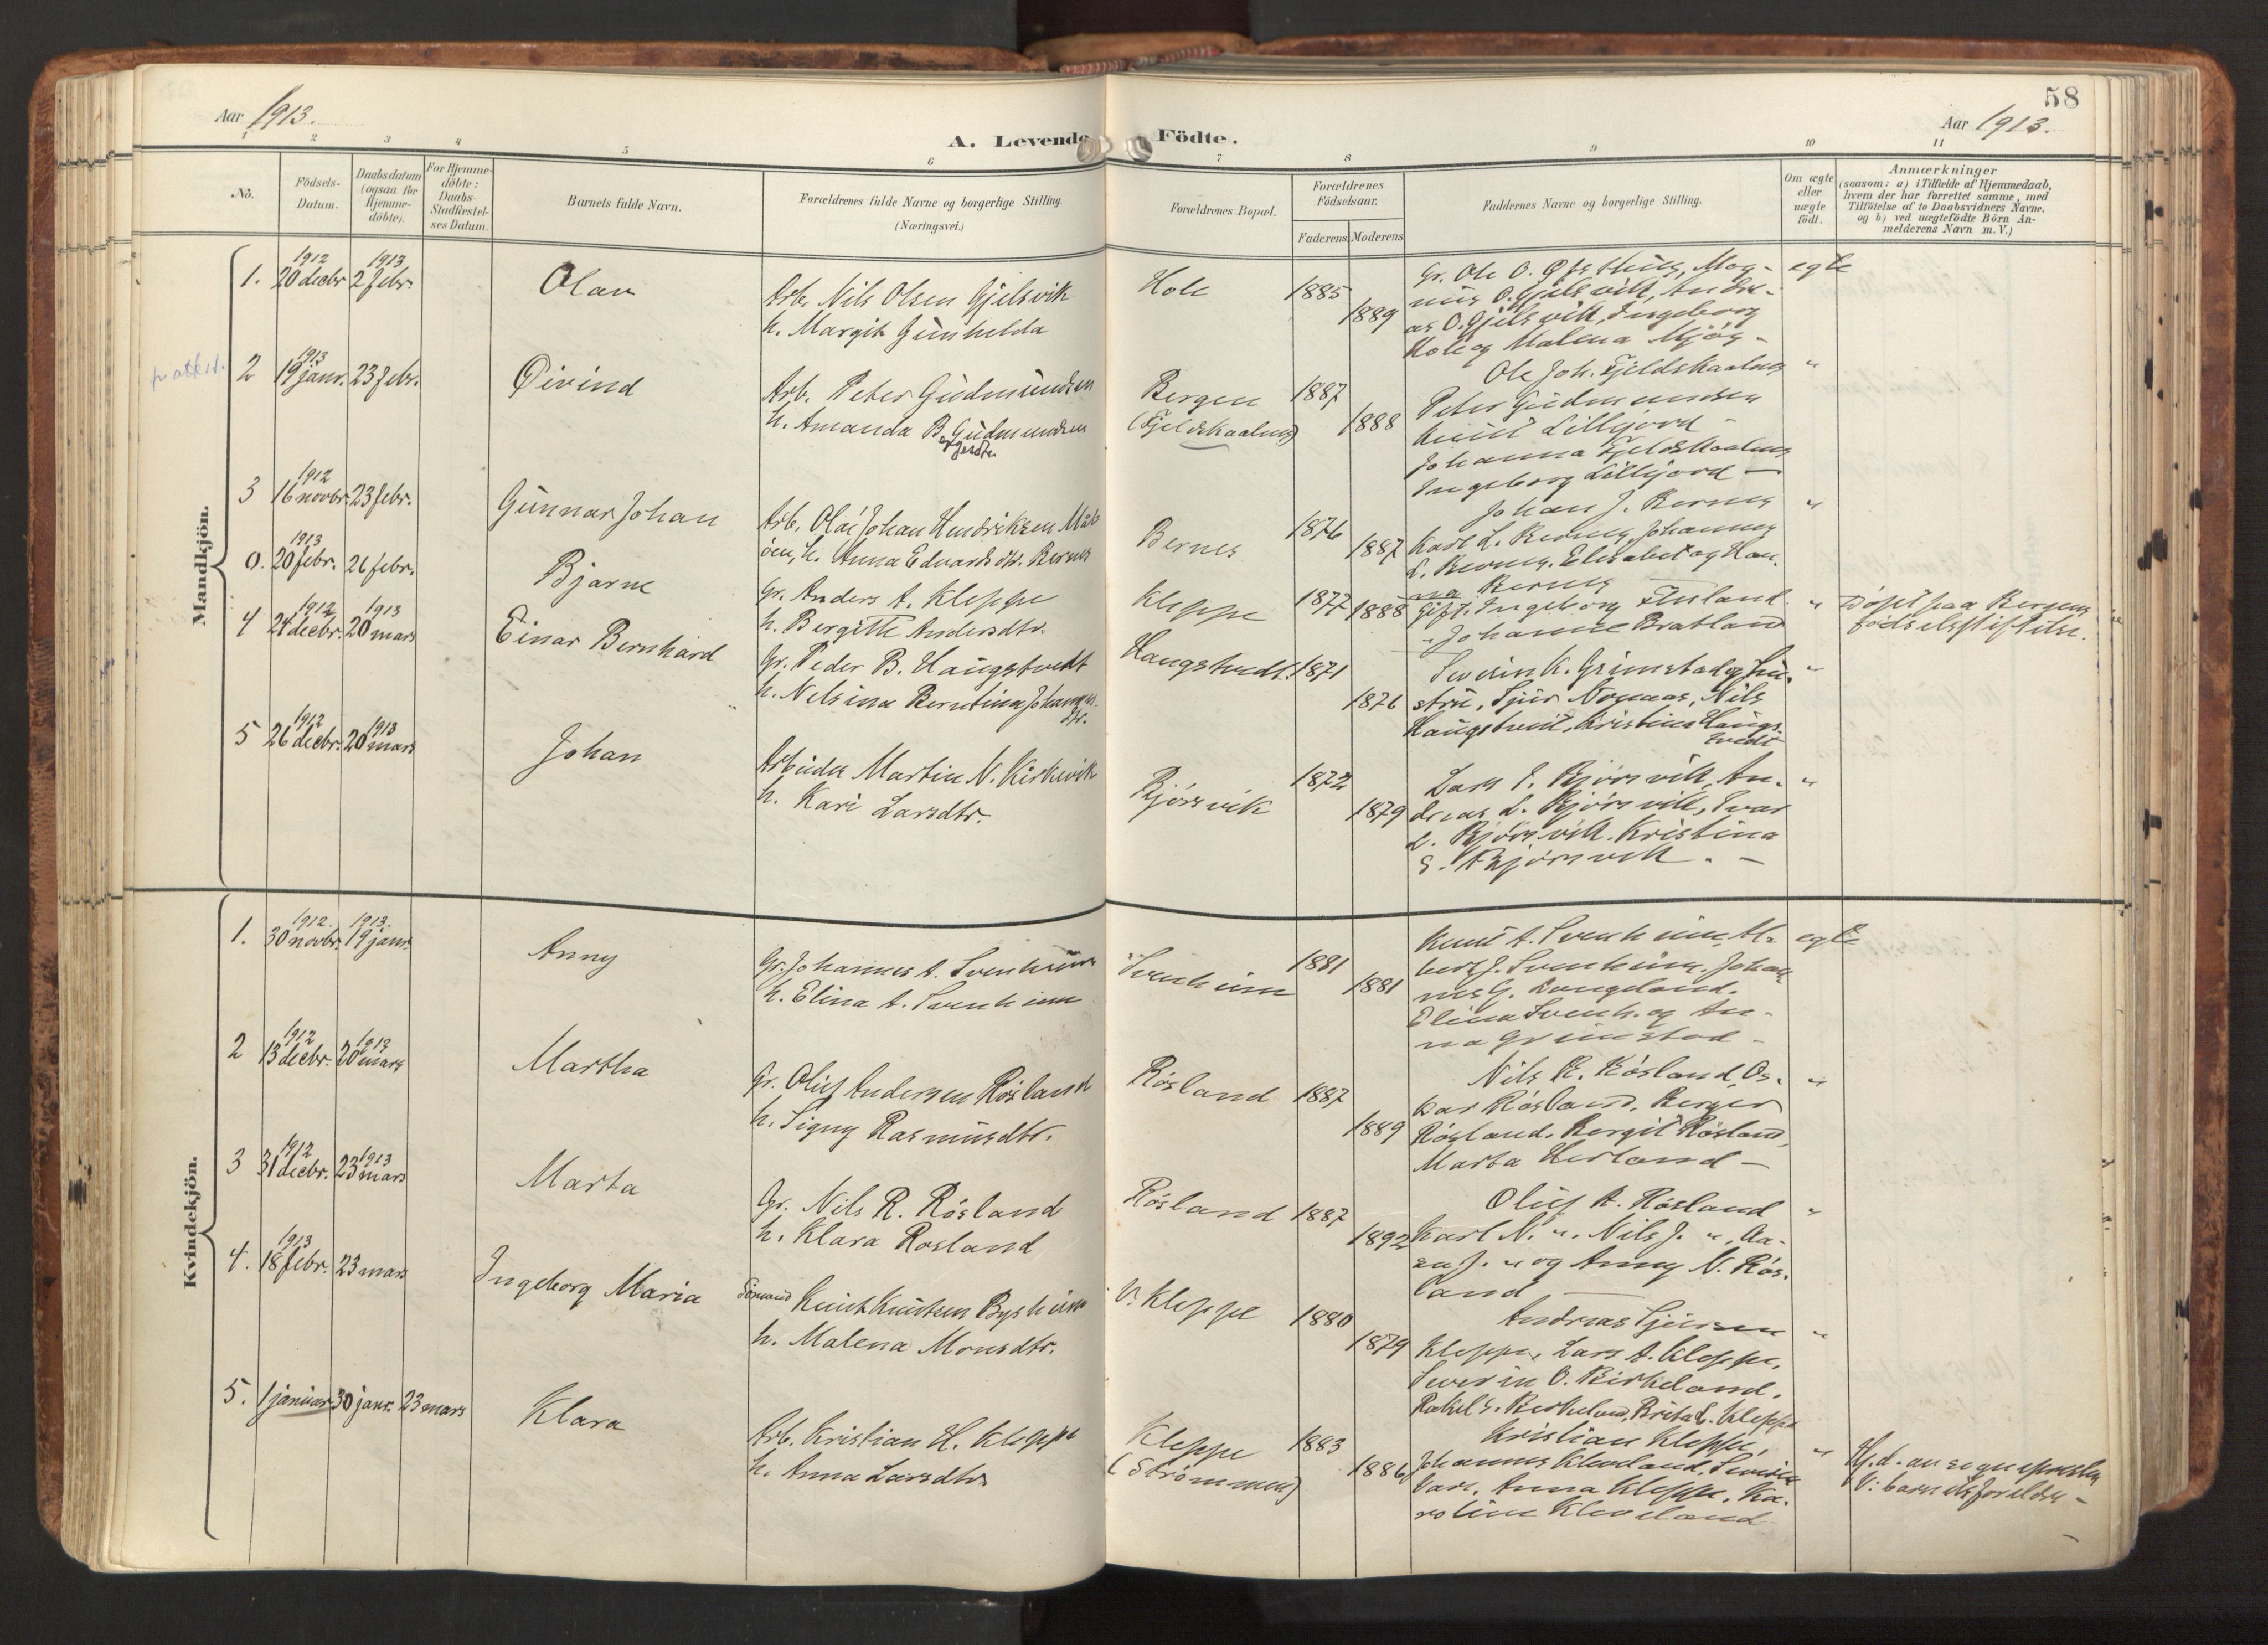 58
Aar 1913.
A. Levende Födte.
Aar 1913.
1 2 3 4 5 6 7 8 9 10 11
No.
Födsels-Datum.
Daabsdatum (ogsaa for Hjemme-döbte).
For Hjemme-döbte: Daabs-Stadfæstel-ses Datum.
Barnets fulde Navn.
Forældrenes fulde Navne og borgerlige Stilling. (Næringsvei.)
Forældrenes Bopæl.
Forældrenes Födselsaar.
Faderens. Moderens.
Faddernes Navne og borgerlige Stilling.
Om ægte eller uægte födt.
Anmærkninger
(saasom: a) i Tilfælde af Hjemmedaab,
hvem der har forrettet samme, med
Tilföielse af to Daabsvidners Navne.
og b) ved uægtefödte Börn An-
melderens Navn m. V.)
Mandkjön.
1. 1912 20 decbr 1913 2 febr. Olav
Arb. Nils Olsen Gjelsvik
h. Margit Gunhilda
Hole 1885 1889
Gr. Ole O. Øfsthus, Mag-
nus O. Gjelsvik, Andre-
as O. Gjelsvik, Ingeborg
Hole og Malena Mjøs -
egte
p attest.
2 1913 19 janr. 23 febr. Øivind
Arb. Peter Gudmundsen
h. Amanda B. Gudmundsen
Bergen (Fjeldskaalnes) 1887 1888
Ole Joh. Fjeldskaalnes
Peter Gudmundsen
Knut Lillejord -
Johanna Fjeldskaalnes
Ingeborg Lillejord -
"
3 1912 16 novbr. 23 febr. Gunnar Johan
Arb. Olai Johan Hendriksen Mål-
öen, h. Anna Edvardsdtr. Bernes
Bernes 1876 1887
Johan J. Bernes
Karl L. Bernes, Johannes
L. Bernes, Elisabet og Han-
na Bernes
"
0. 1913 20 febr. 26 febr. Bjarne
Gr. Anders A. Kleppe
h. Bergitte Andersdtr.
Kleppe 1877 1888
Gift. Ingeborg
" Johanne Bratland
" Døpt paa Bergens
fødselsstiftelse.
4 1912 24 decbr. 1913 20 mars Einar Bernhard
Gr. Peder B. Haugstvedt
h. Nelsina Berntina Johannes-
dtr.
Haugstvedt. 1871 1876
Severin K. Grimstad og hu-
stru, Sjur Nomaas, Nils
Haugstvedt, Kristina Haugs-
tvedt
"
5 1912 26 decbr. 1913 20 mars Johan
Arbeider Martin N. Kirkevik
h. Kari Larsdtr.
Bjørsvik 1872 1879
Lars E. Bjørsvik, An-
dreas L. Bjørsvik, Ivar
L. Bjørsvik. Kristina
E. Bjørsvik. -
"
Kvindekjön.
1. 1912. 30 novbr. 1913. 19 janr. Anny
Gr. Johannes A. Svenheim
h. Elina A. Svenheim
Svenheim 1881 1881
Knut A. Svenheim, Al-
bert J. Svenheim. Johan-
nes G. Lungeland.
Elina Svenh. og An-
na Grimstad -
egte
2 1912 13 decbr. 1913 20 mars Martha
Gr. Oluf Andersen Røsland
h. Signy Rasmusdtr.
Røsland 1887 1889
Nils R. Røsland, Os-
kar Røsland, Berger
Røsland. Bergit Røsland,
Marta Herland -
"
3 1912 31 decbr. 1913 23 mars Marta
Gr. Nils R. Røsland
h. Klara Rosland
Røsland 1887 1892
Oluf A. Røsland
Karl N. ". Nils J. ", Aa-
sa J. " og Anny N. Røs-
land -
"
4. 1913 18 febr. 23 mars Ingeborg Maria
Sömand Knut Knutsen Bysheim
h. Malena Monsdtr.
V. Kleppe 1880 1879
Andreas Sjursen
Kleppe, Lars A. Kleppe,
Severin O. Birkeland,
Rakel S. Birkeland, Brita L. Kleppe
"
5. 1 januar 30 janr. 23 mars Klara
Arb. Kristian H. Kleppe
h. Anna Larsdtr
Kleppe (Strømmen) 1883 1886
Kristian Kleppe,
Johannes Kleveland, Severin
Vare, Anna Kleppe, Ka-
roline Kleveland
" Hj.d. av sognepresten
V: barnets foreldre -